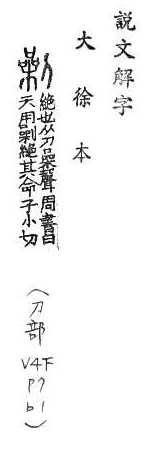 説文解字
大徐本
劋
絕也从刀喿聲周書曰
天用劋絕其命子小切
(刀部
V4下
P7
b1)